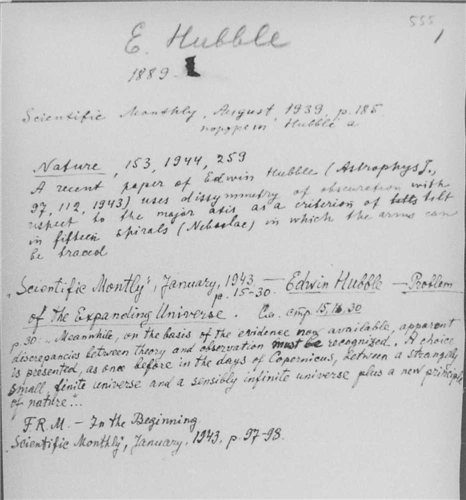 555
1
E. Hubble
1889 -
Scientific Monthly, August, 1939, p. 185
портрет Hubble'a
Nature, 153, 1944, 259
A recent paper of Edwin Hubble (Astrophys J.,
97, 112, 1943) uses dissymmetry of obscuration with
respect to the major axis as a criterion of tilt
in fifteen spirals (Nebulae) in which the arms can
be traced
"Scientific Montly", January, 1943 —
p. 15-30. — Edwin Hubble — Problem
of the Expanding Universe. См. стр. 15, 16, 30
p. 30. "Meanwhile, on the basis of the evidence now available, apparent
discrepancies between theory and observation must be recognized. A choice
is presented, as once before in the days of Copernicus, between a strangely
small, finite universe and a sensibly infinite universe plus a new principle
of nature"...
F.R.M. — In the Beginning.
"Scientific Monthly", January, 1943, p. 97-98.